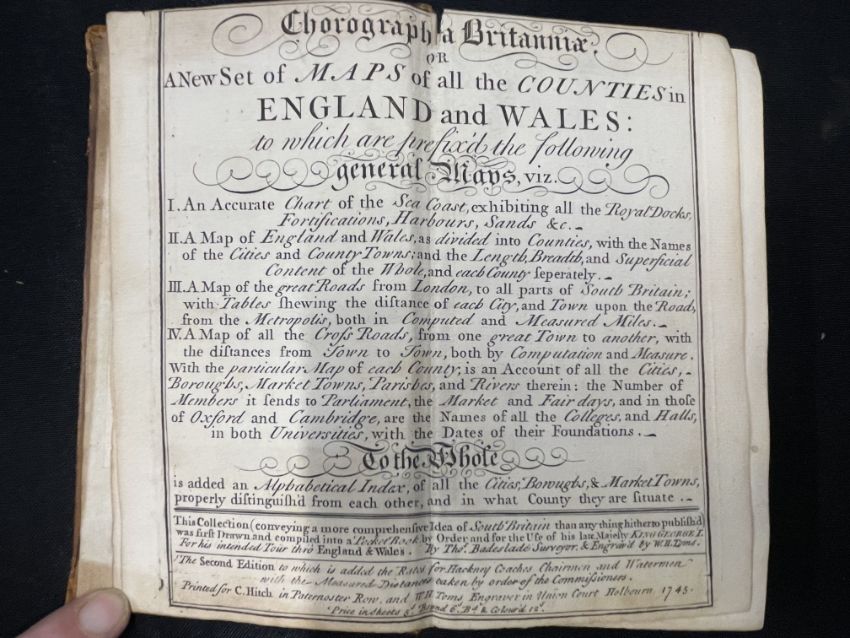 Chorographia Britanniæ.
OR
A New Set of MAPS of all the COUNTIES in
ENGLAND and WALES:
to which are prefix'd the following
general Maps, viz.
I. An Accurate Chart of the Sea Coast, exhibiting all the Royal Docks,
Fortifications, Harbours, Sands &c.
II. A Map of England and Wales, as divided into Counties, with the Names
of the Cities and County Towns; and the Length, Breadth, and Superficial
Content of the Whole, and each County seperately.
III. A Map of the great Roads from London, to all parts of South Britain;
with Tables shewing the distance of each City, and Town upon the Road,
from the Metropolis, both in Computed and Measured Miles.
IV. A Map of all the Cross Roads, from one great Town to another, with
the distances from Town to Town, both by Computation and Measure.
With the particular Map of each County, is an Account of all the Cities,
Boroughs, Market Towns, Parishes, and Rivers therein: the Number of
Members it sends to Parliament, the Market and Fair days, and in those
of Oxford and Cambridge, are the Names of all the Colleges, and Halls,
in both Universities, with the Dates of their Foundations.
To the Whole
is added an Alphabetical Index, of all the Cities, Boroughs, & Market Towns,
properly distinguish'd from each other, and in what County they are situate.
This Collection (conveying a more comprehensive Idea of South Britain than any thing hitherto publish'd
was first Drawn and compiled into a Pocket Book by Order and for the Use of his late Majesty KING GEORGE I.
For his intended Tour thro England & Wales. By Thos. Badeslade Surveyor, & Engrav'd by W.H. Toms.
The Second Edition to which is added the Rates for Hackney Coaches Chairmen and Watermen
with the Measured Distances taken by order of the Commissioners.
Printed for C. Hitch in Paternoster Row, and W.H. Toms Engraver in Union Court Holbourn. 1745.
Price in sheets 5s. Bound 6s. & Colour'd